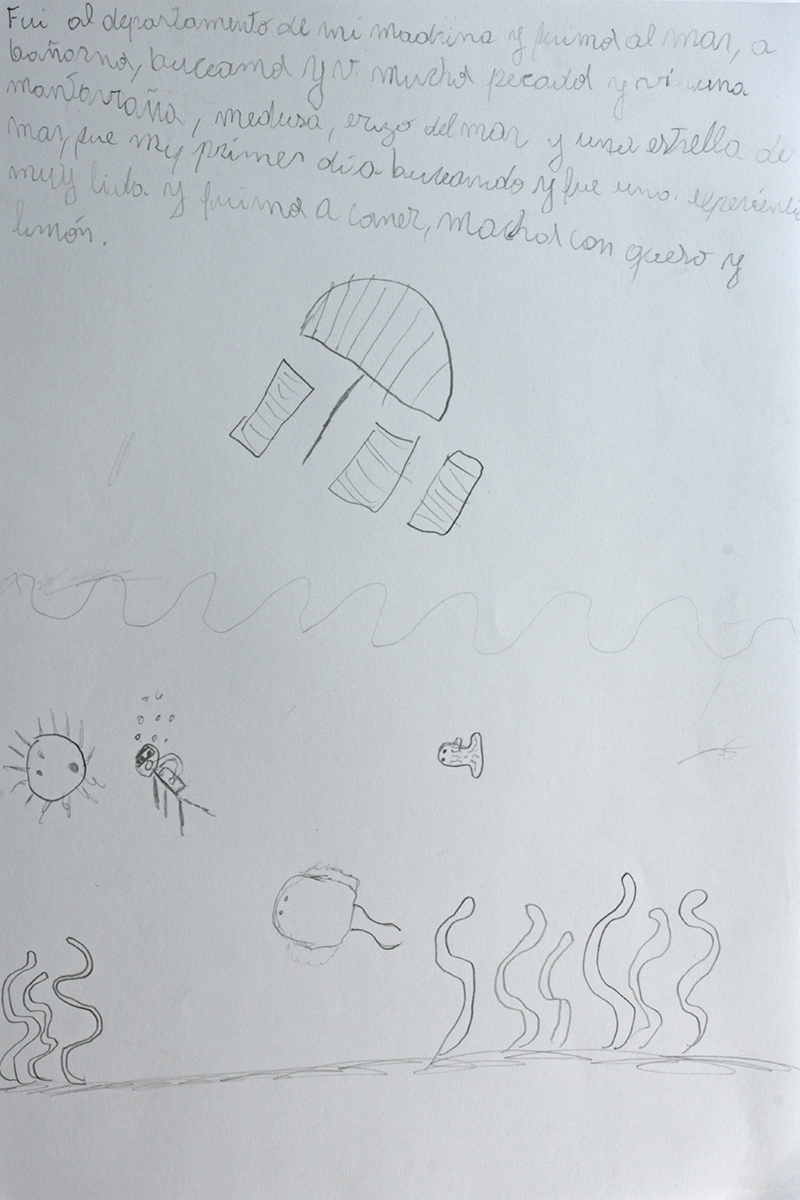 Fui al departamento de mi madrina y fuimos al mar, a
bañarnos, buceamos y vi muchos pecados y vi una
mantarraña, medusa, erizo del mar y una estrella de
mar, fue my primer día buceando y fue una experiencia
muy lida y fuimos a comer, machas con queso y
limón.